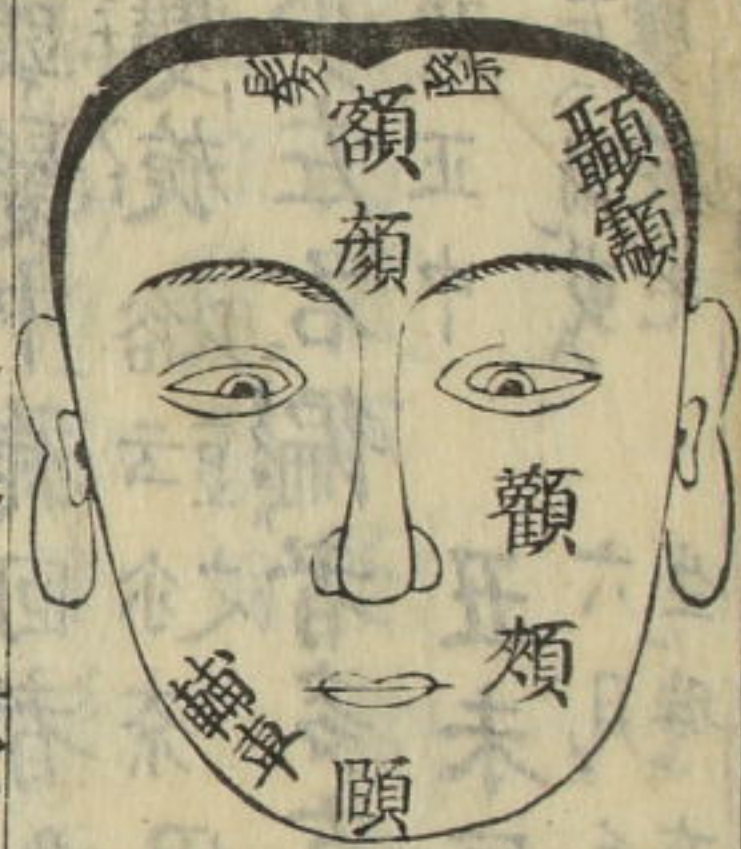 髪際
額
顔
顳顬
顴
頰
輔車
頤